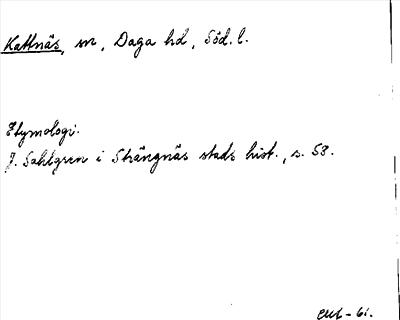 Kattnäs, sn, Daga hd, Söd. l.
Etymologi.
J. Sahlgren i Strängnäs stads hist., s. 58.